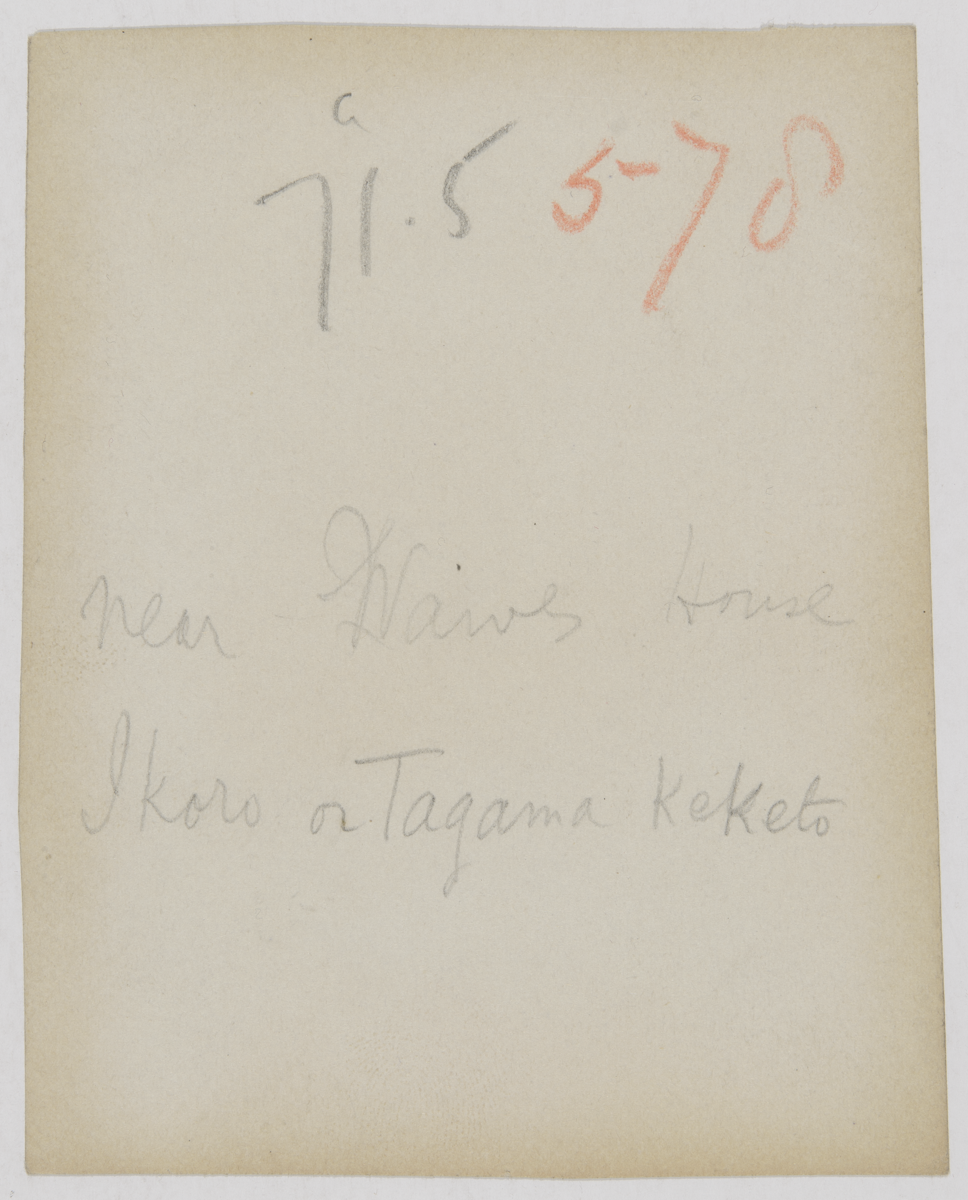 a
71.5 578
near Wawes House
Ikoro or Tagama Keketo